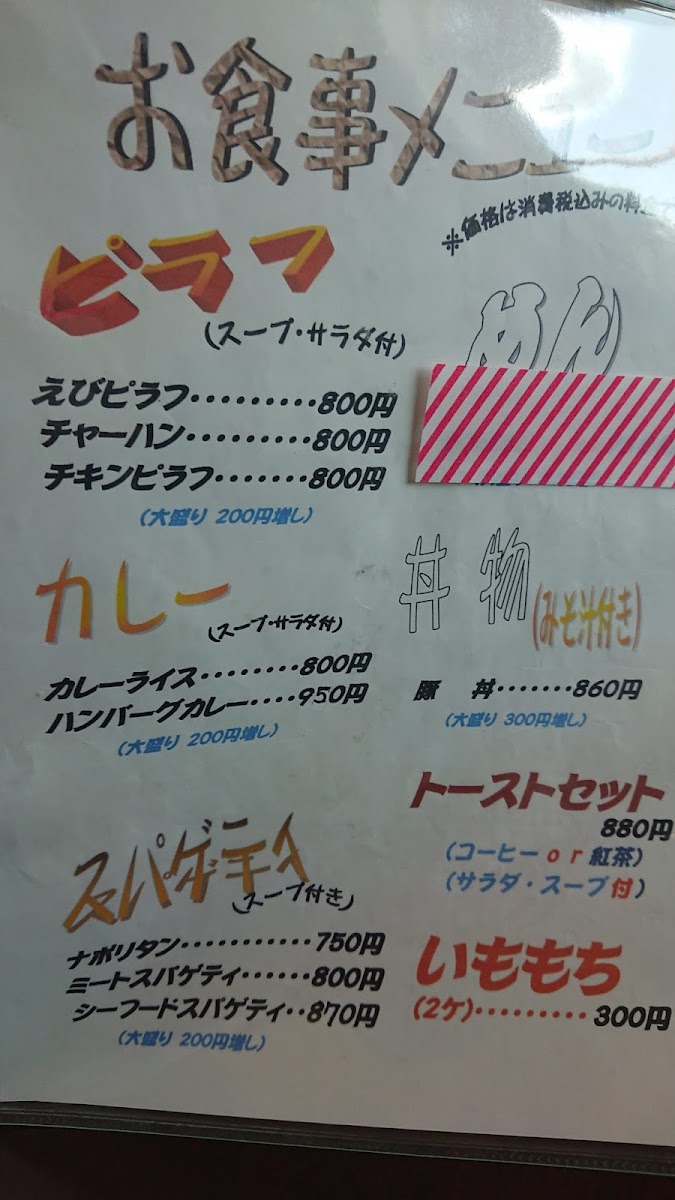 お食事メニュー
※価格は消費税込みの料
ピラフ
(スープ・サラダ付)
えびピラフ・・・・・・・・・800円
チャーハン・・・・・・・・・800円
チキンピラフ・・・・・・・800円
(大盛り 200円増し)
カレー
(スープ・サラダ付)
カレーライス・・・・・・・・800円
ハンバーグカレー・・・・950円
(大盛り 200円増し)
スパゲティ
(スープ付き)
ナポリタン・・・・・・・・・・・750円
ミートスパゲティ・・・・・・800円
シーフードスパゲティ・・870円
(大盛り 200円増し)
めん
丼 物(みそ汁付き)
豚 丼・・・・・・・860円
(大盛り 300円増し)
トーストセット
880円
(コーヒー or 紅茶)
(サラダ・スープ付)
いももち
(2ケ)・・・・・・・・・300円